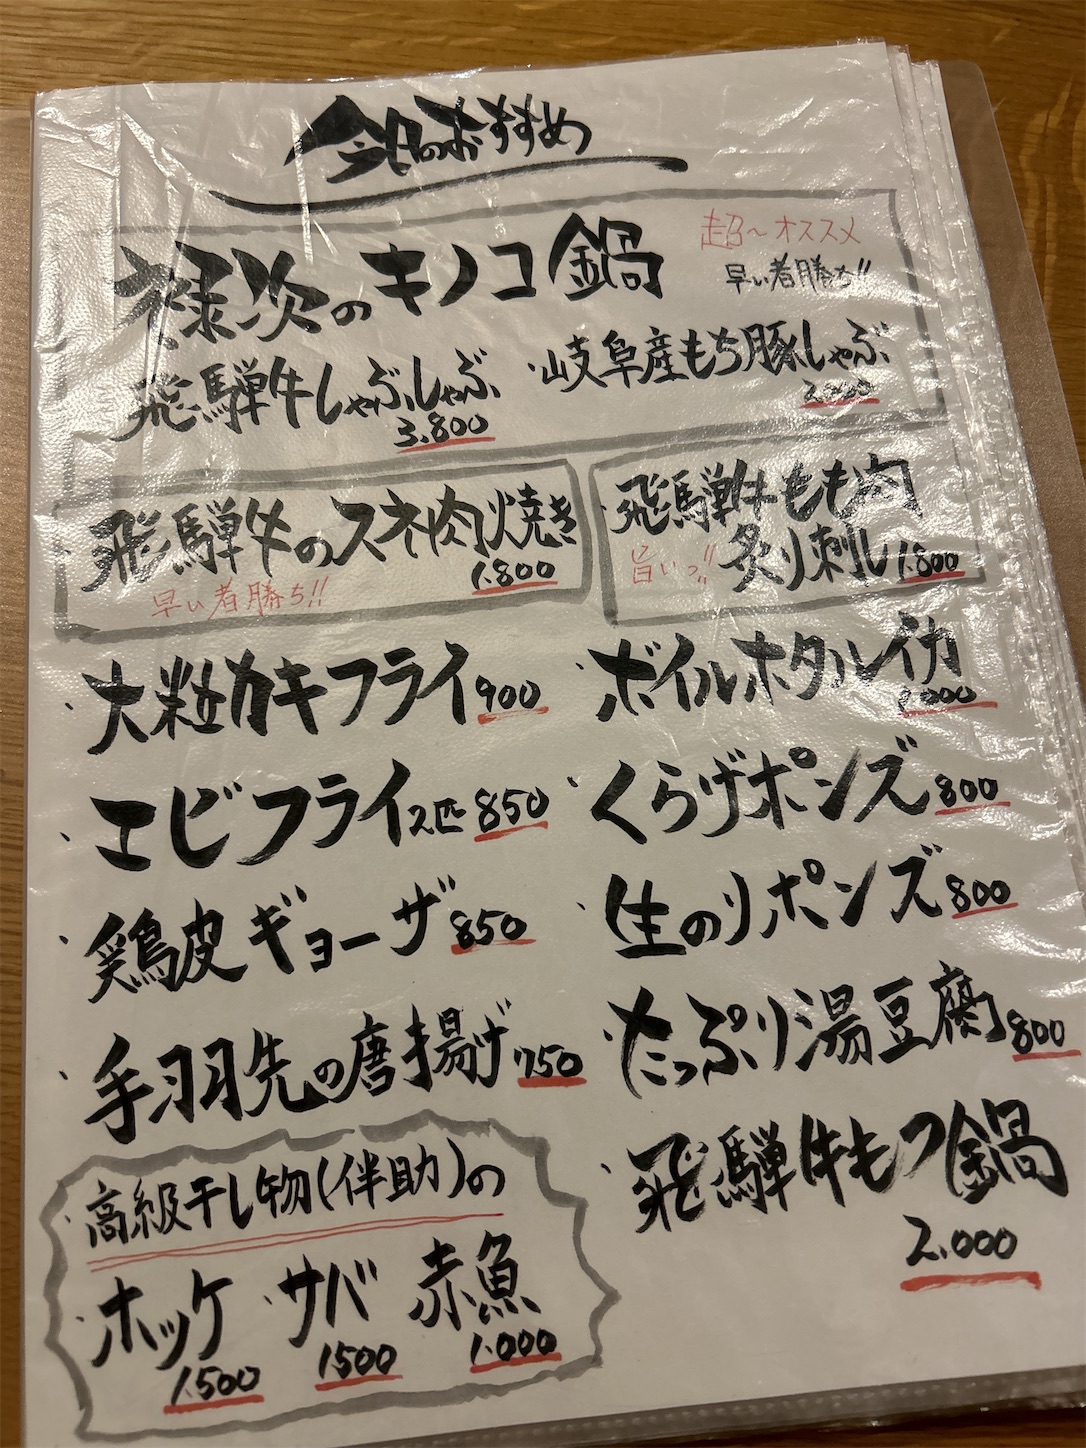 今日のおすすめ
禄次のキノコ鍋
超〜オススメ
早い者勝ち!!
飛騨牛しゃぶしゃぶ
3.800
・岐阜産もち豚しゃぶ
2.000
飛騨牛のスネ肉焼き
1.800
早い者勝ち!!
飛騨牛もも肉
旨いっ!! 炙り刺し 1.800
・大粒カキフライ 900
・エビフライ 2匹 850
・鶏皮ギョーザ 850
・手羽先の唐揚げ 750
・ボイルホタルイカ
1.000
・くらげポンズ 800
・生のりポンズ 800
・たっぷり湯豆腐 800
・飛騨牛もつ鍋
2.000
・高級干し物(伴助)の
・ホッケ
1.500
・サバ
1500
赤魚
1.000